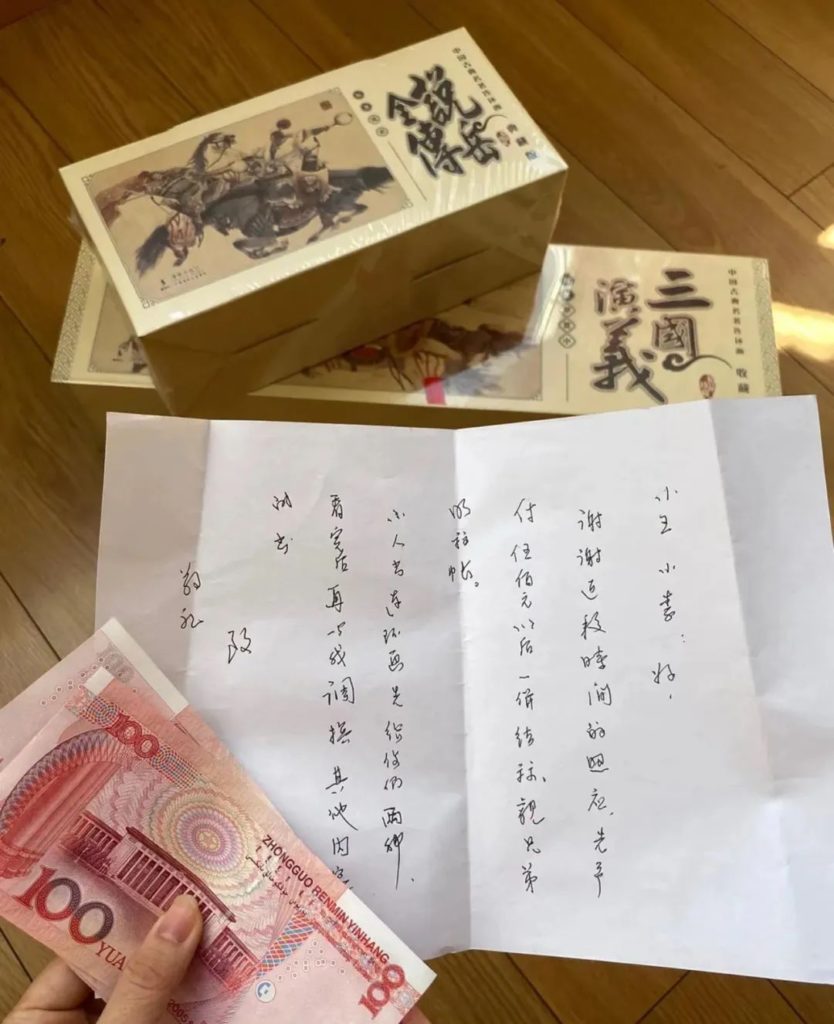 中国古典名著连环画
说岳
全傳
典藏
中国古典名著连环画
三國
演義
收藏
小王 小李：好，
谢谢这段时间的照应，先予
付伍佰元以后一併结算、親兄弟
明算帐。
小人书连环画先给你们两种，
看完后再与我调换其他内
的书
翁礼
段
100
100
YUAN
ZHONGGUO RENMIN YINHANG
100
2005